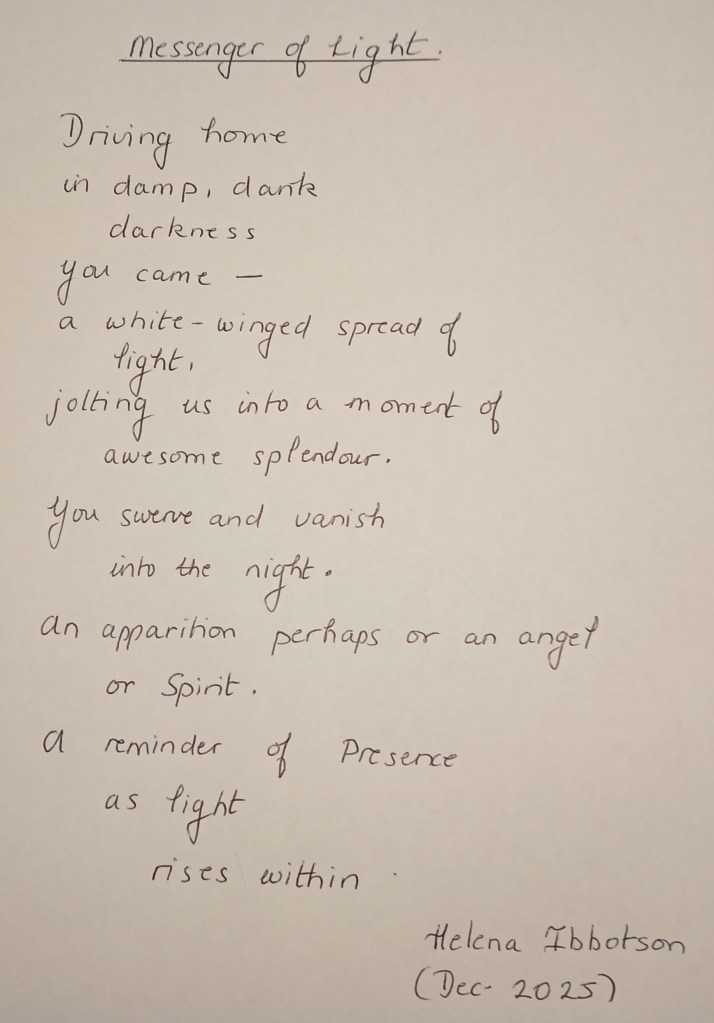 Messenger of Light.
Driving home
in damp, dank
darkness
you came —
a white-winged spread of
light,
jolting us into a moment of
awesome splendour.
You swerve and vanish
into the night.
An apparition perhaps or an angel
or Spirit.
A reminder of Presence
as light
rises within.
Helena Ibbotson
(Dec- 2025)